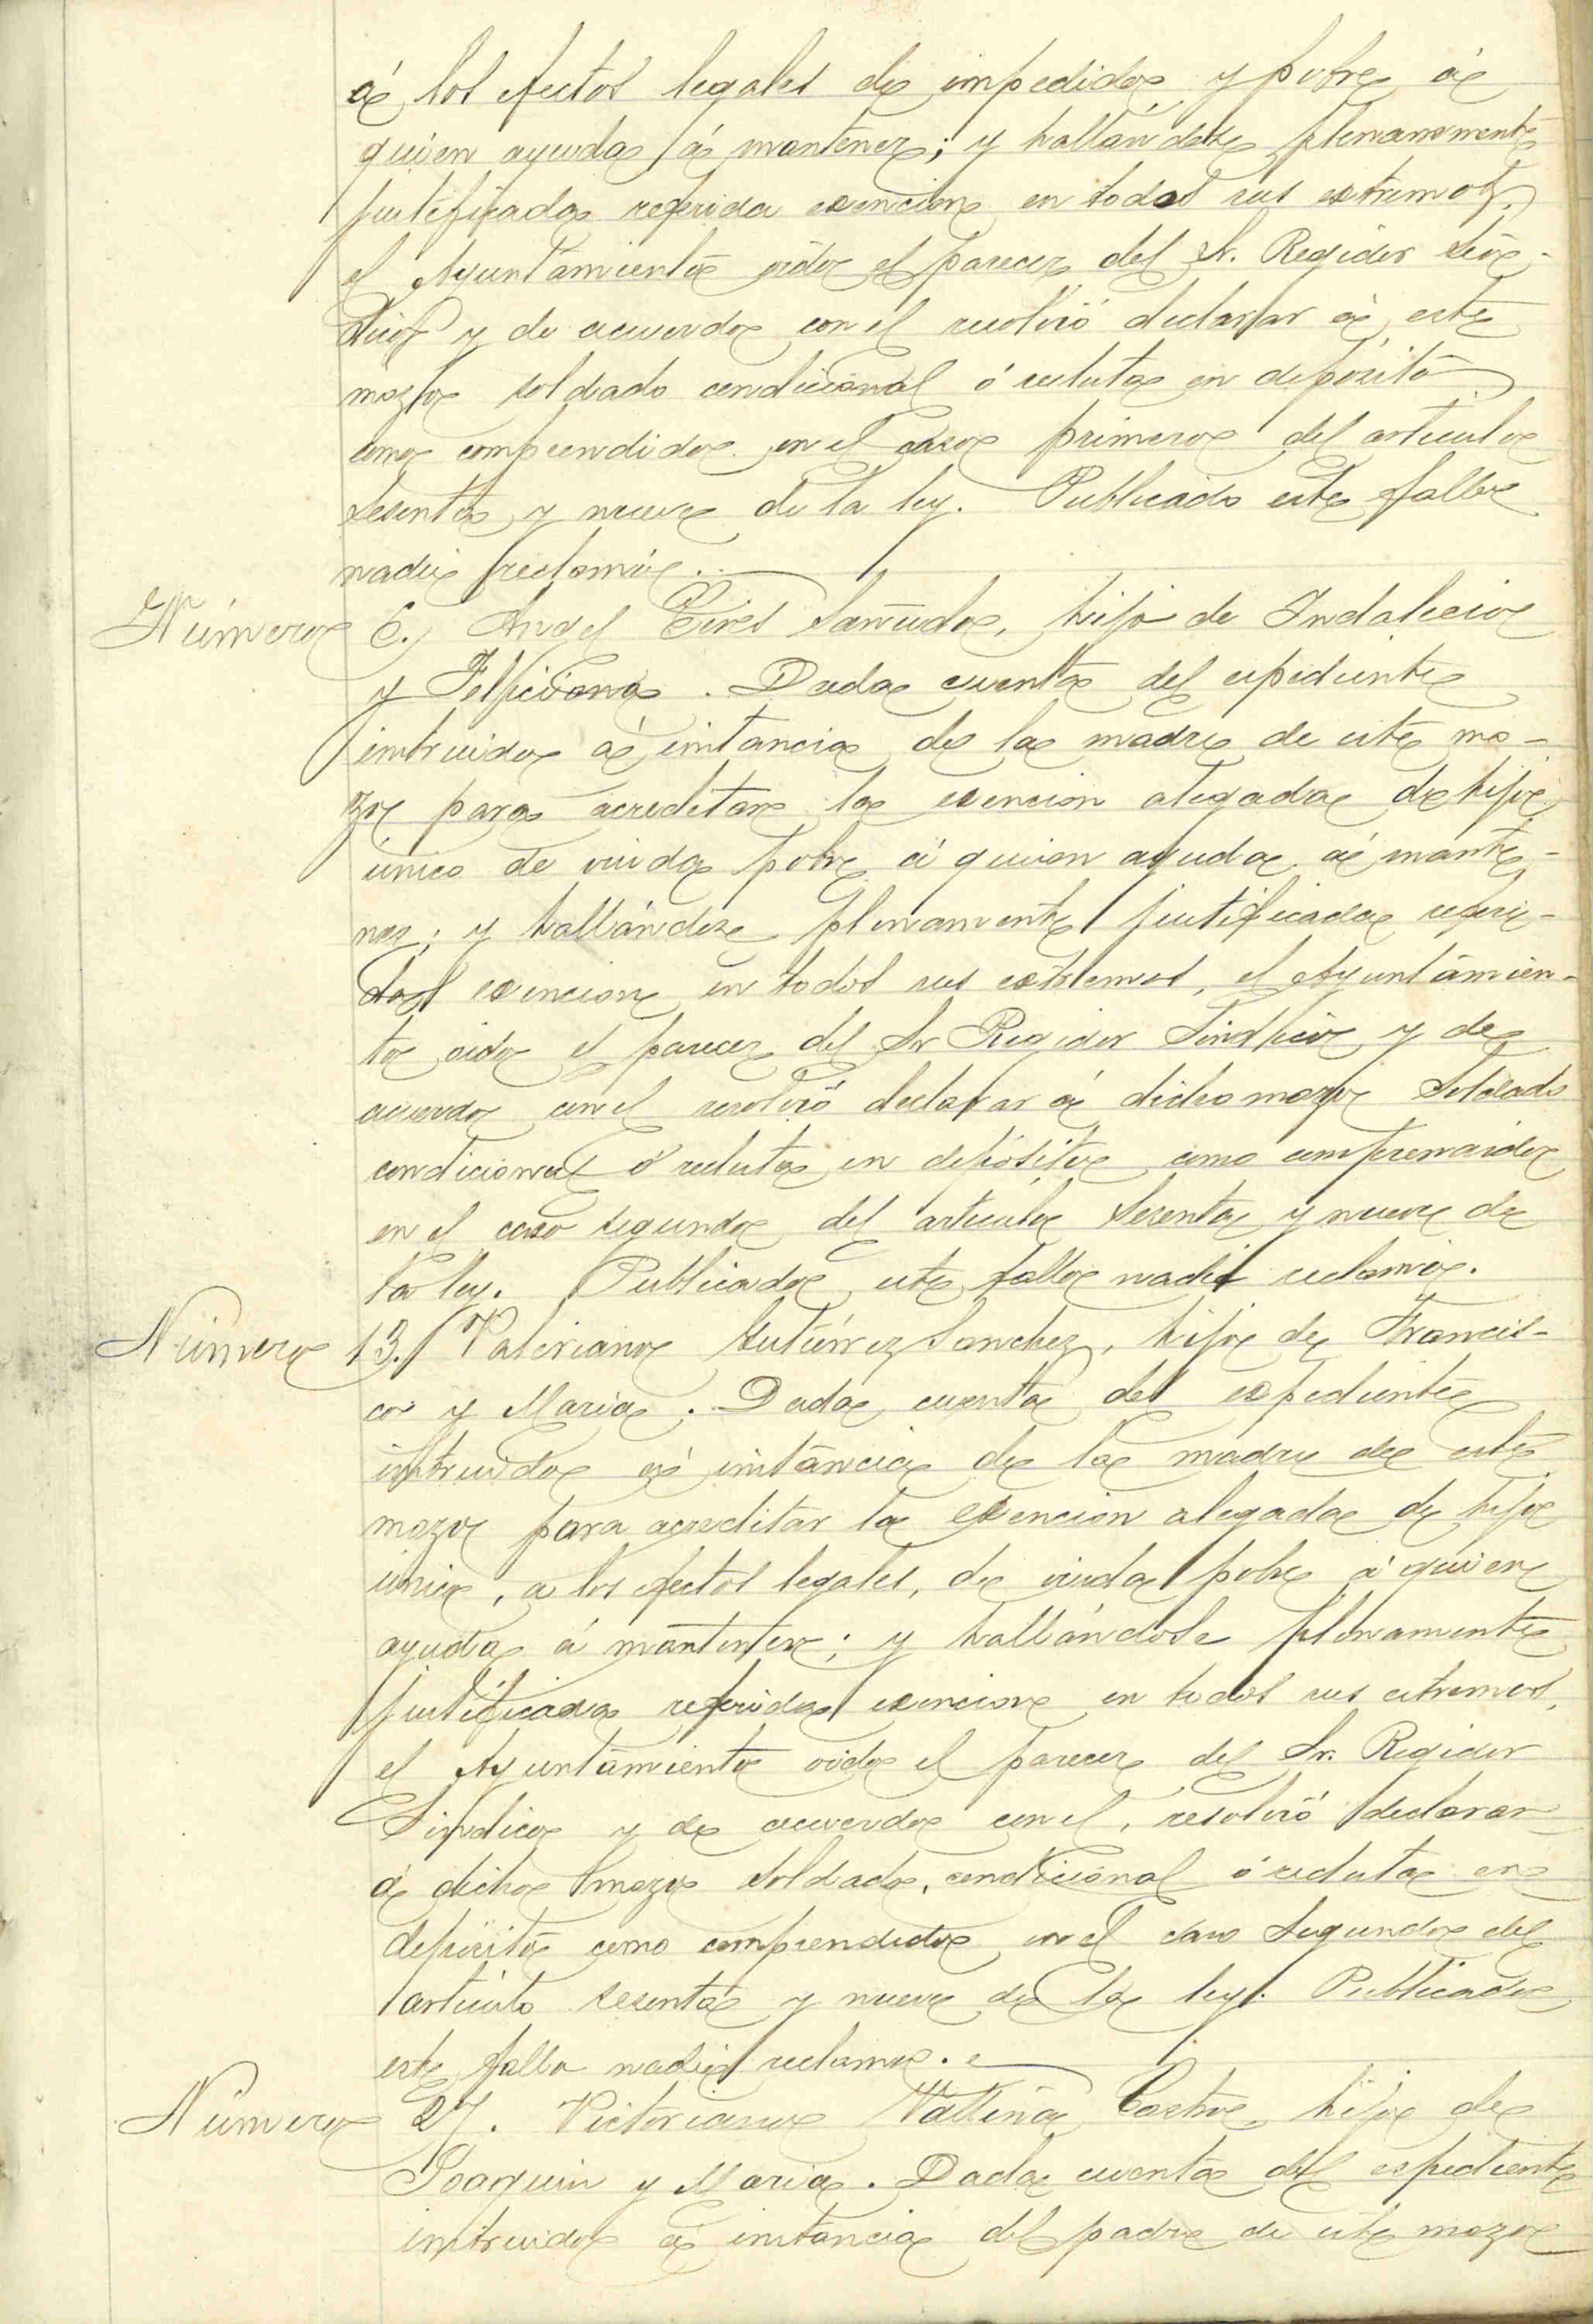 á los efectos legales de impedido y pobre á
quien ayuda á mantener; y hallándose plenamente
justificada referida exencion en todos sus extremos,
el Ayuntamiento oido el parecer del Sr. Regidor Sín-
dico y de acuerdo con el resolvió declarar á este
mozo soldado condicional ó recluta en depósito
como comprendido en el caso primero del articulo
sesenta y nueve de la ley. Publicado este fallo
nadie reclamó.
Número 6. Angel Eires Sañudo, hijo de Indalecio
y Feliciana. Dada cuenta del espediente
instruido á instancia de la madre de este mo-
zo para acreditar la exencion alegada de hijo
único de viuda pobre á quien ayuda á mante-
ner; y hallándose plenamente justificada referi-
da exencion en todos sus extremos, el Ayuntamien-
to oido el parecer del Sr Regidor Sindico y de
acuerdo con el resolvió declarar á dicho mozo soldado
condicional ó recluta en depósito como comprendido
en el caso segundo del articulo sesenta y nueve de
la ley. Publicado este fallo nadie reclamó.
Número 13. Valeriano Gutiérrez Sanchez, hijo de Francis-
co y Maria. Dada cuenta del expediente
instruido á instancia de la madre de este
mozo para acreditar la exencion alegada de hijo
único, a los efectos legales, de viuda pobre á quien
ayuda á mantener; y hallándose plenamente
justificada referida exencion en todos sus estremos,
el Ayuntamiento oido el parecer del Sr. Regidor
Sindico y de acuerdo con el, resolvió declarar
á dicho mozo soldado condicional ó recluta en
depósito como comprendido en el caso segundo del
articulo sesenta y nueve de la ley. Publicado
este fallo nadie reclamó.
Número 27. Victoriano Valtiña Castro, hijo de
Joaquin y Maria. Dada cuenta del espediente
instruido á instancia del padre de este mozo